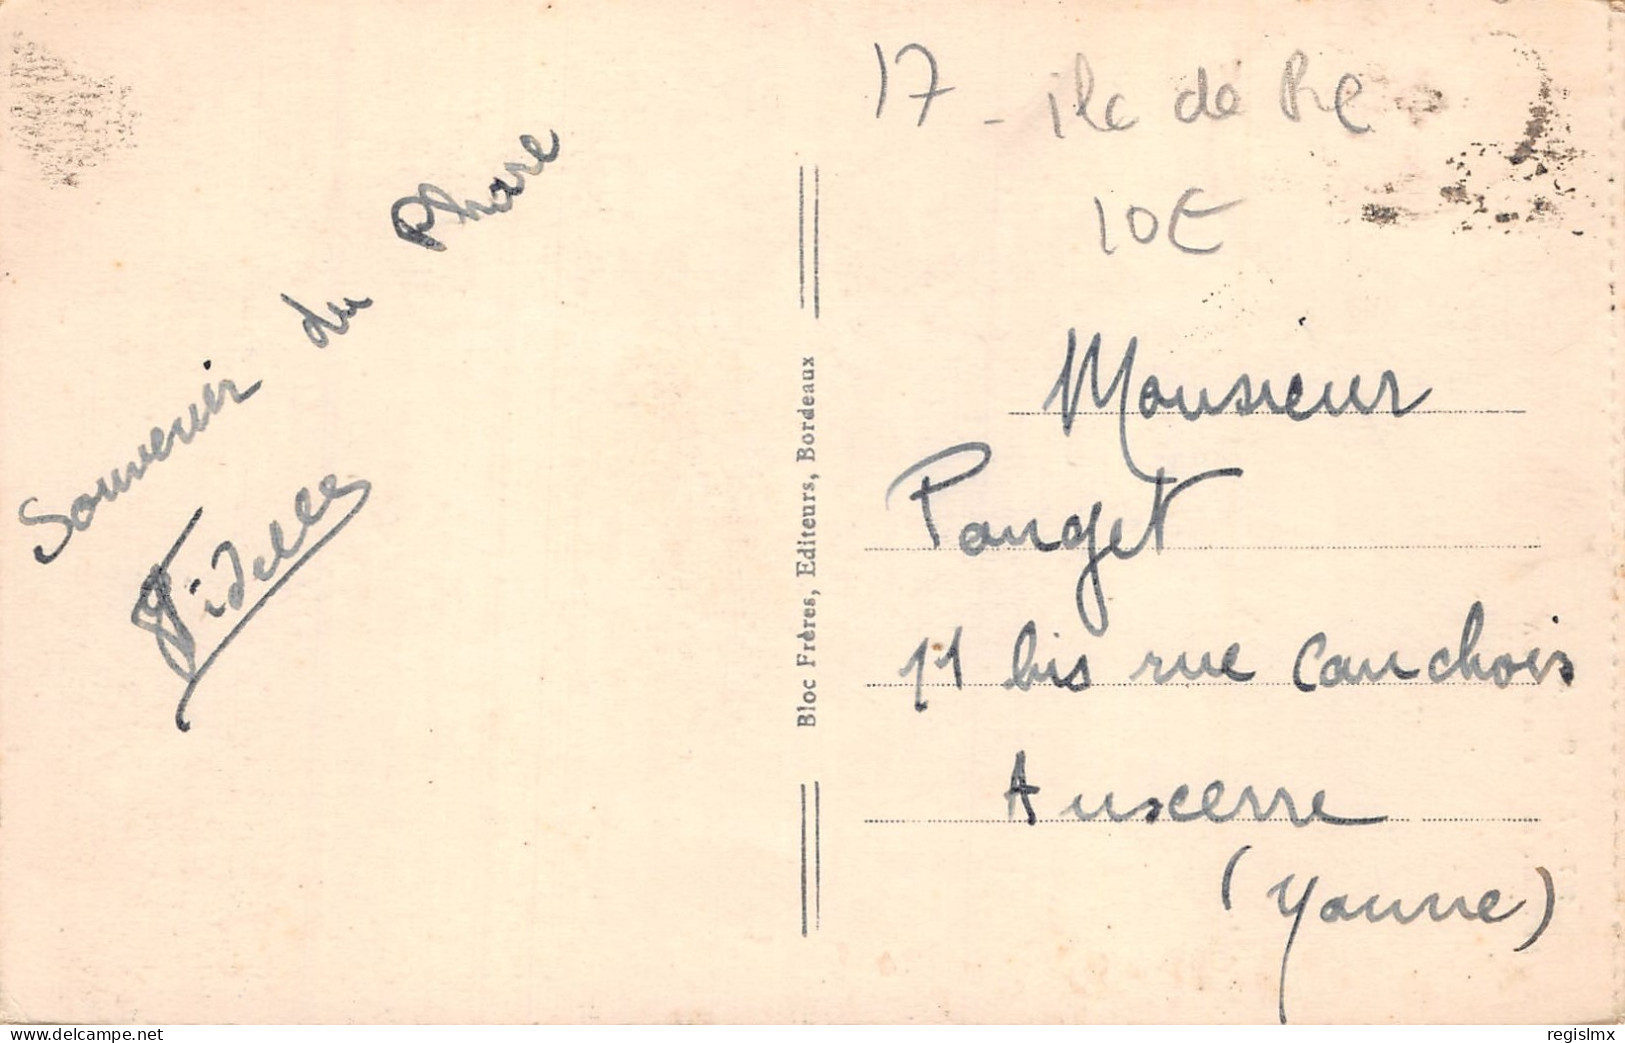 Souvenir du Phare
Fidèle
Bloc Frères, Editeurs, Bordeaux
17 - ile de Ré
10€
Monsieur
Pouget
11 bis rue Cauchois
Auxerre
(Yonne)
www.delcampe.net
regislmx